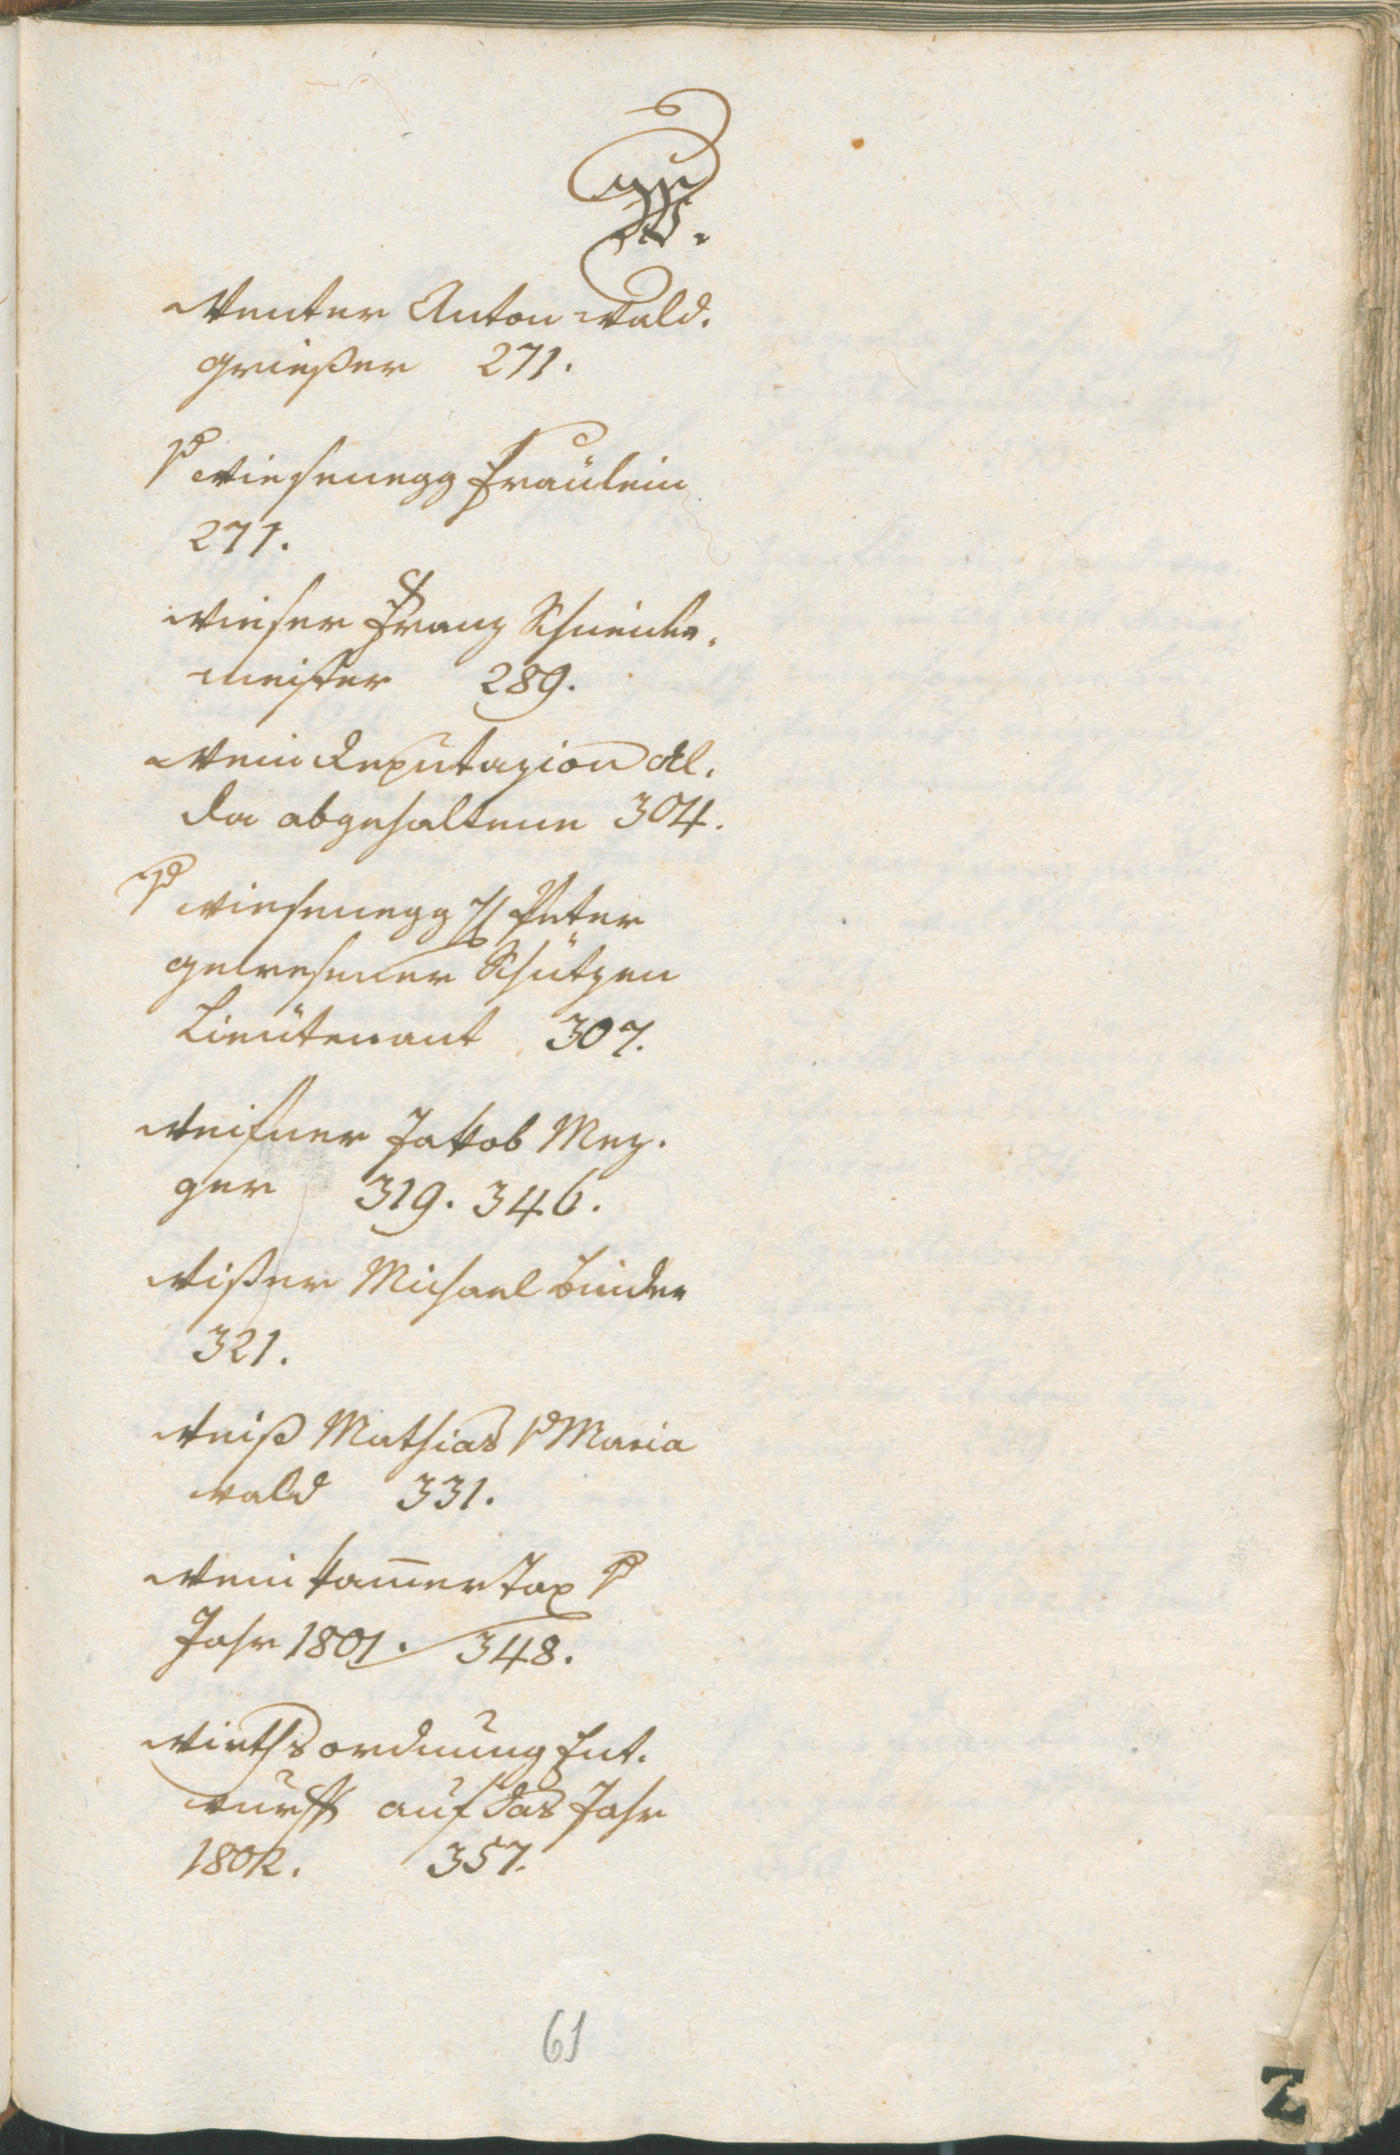 W.
Wenter Anton Wald-
grießer 271.
v Wiesenegg Fräulein
271.
Wieser Franz Schneider-
meister 289.
Wein Deputazion all-
da abgehaltene 304.
v Wiesenegg Peter
gewesener Schützen
Lieütenant 307.
Weisner Jakob Mez-
ger 319. 346.
Wißer Michael Binder
321.
Weiß Mathias v Maria
Wald 331.
Wein Kam̅er Tax
Jahr 1801. 348.
Wirthsordnung Ent-
wurff auf das Jahr
1802. 357.
61
Z